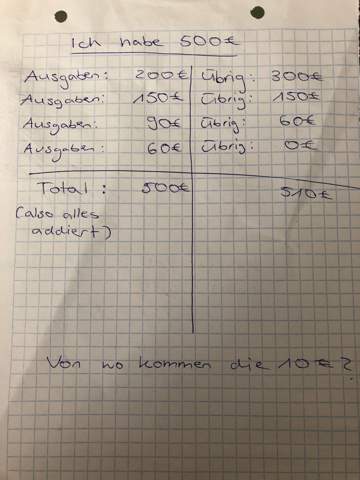 Ich habe 500€
Ausgaben: 200€ Übrig: 300€
Ausgaben: 150€ Übrig: 150€
Ausgaben: 90€ Übrig: 60€
Ausgaben: 60€ Übrig: 0€
Total: 500€ 510€
(also alles
addiert)
Von wo kommen die 10€?